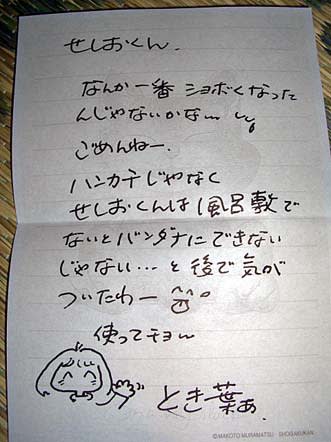 せしおくん.
なんか一番 ショボくなった
んじゃないかな…
ごめんねー.
ハンカチじゃなく
せしおくんは風呂敷で
ないとバンダナにできない
じゃない…と後で気が
ついたわー
使ってチョー
とき葉ぁ.
©MAKOTO MURAMATSU SHOGAKUKAN